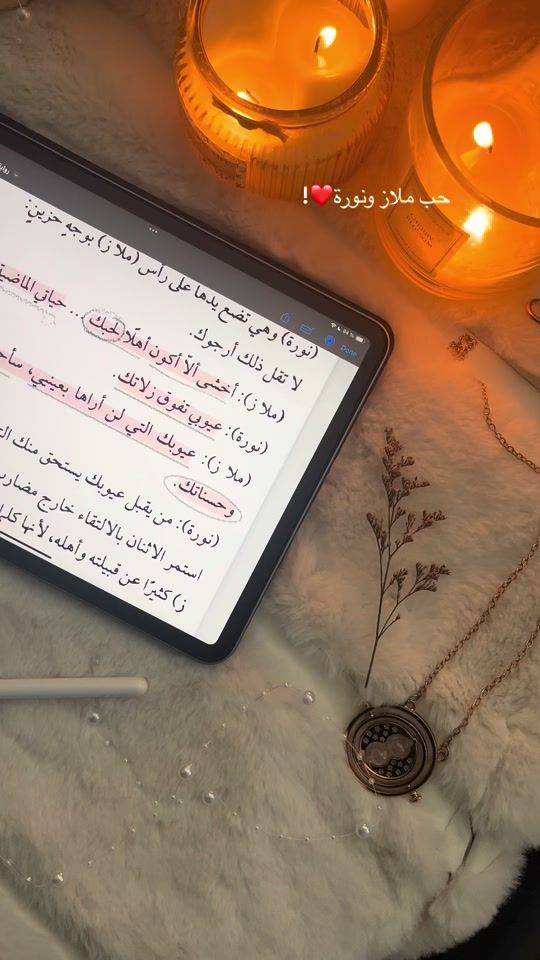 حب ملاز ونورة❤️!
84 %
Done
(نورة) وهي تضع يدها على رأس (ملاز) بوجهٍ حزين:
لا تقل ذلك أرجوك.
(ملاز): أخشى ألّا أكون أهلًا لحبك .. حياتي الماضية
(نورة): عيوبي تفوق زلاتك.
(ملاز): عيوبك التي لن أراها بعيني،
وحسناتك.
(نورة): من يقبل عيوبك يستحق منك
استمر الاثنان بالالتقاء خارج مضارب
ز) كثيرًا عن قبيلته وأهله، لأنها